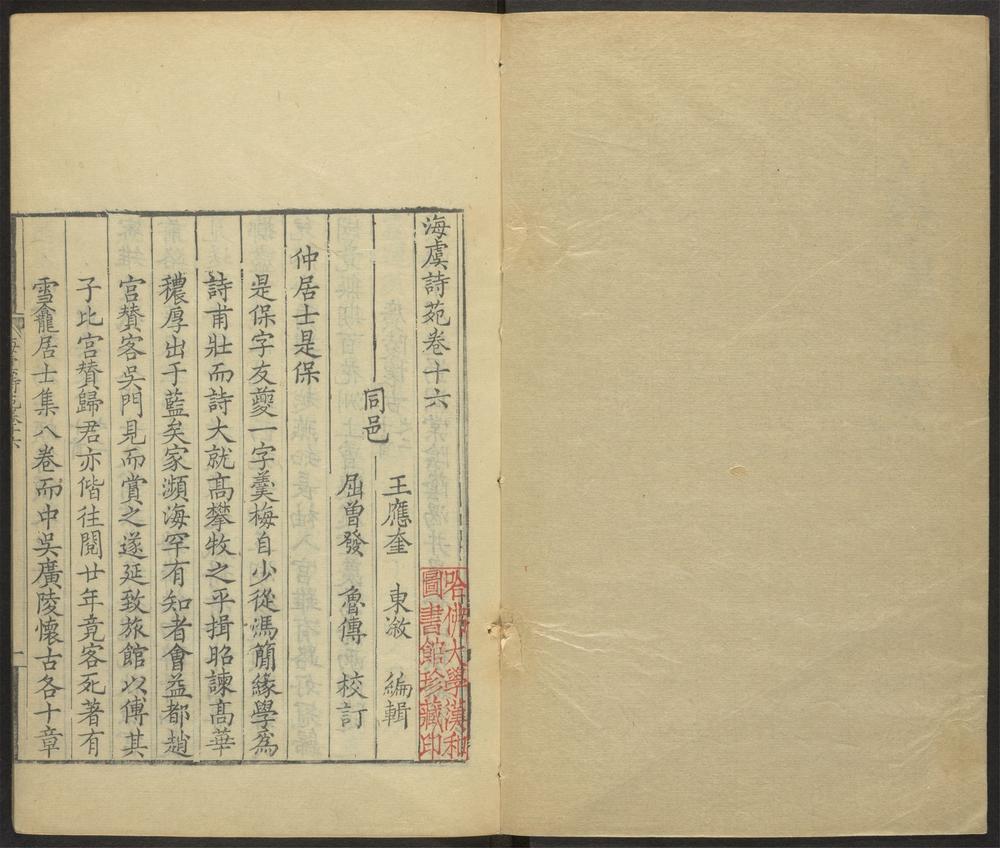 海虞詩苑卷十六
王應奎 東漵 編輯
同邑
屈曾發 魯傳 校訂
仲居士是保
是保字友夔一字羹梅自少從馮簡緣學爲
詩甫壯而詩大就高攀牧之平揖昭諫高華
穠厚出于藍矣家瀕海罕有知者會益都趙
宮贊客吳門見而賞之遂延致旅館以傅其
子比宮贊歸君亦偕往閱廿年竟客死著有
雪龕居士集八卷而中吳廣陵懷古各十章
哈佛大學漢和
圖書館珍藏印